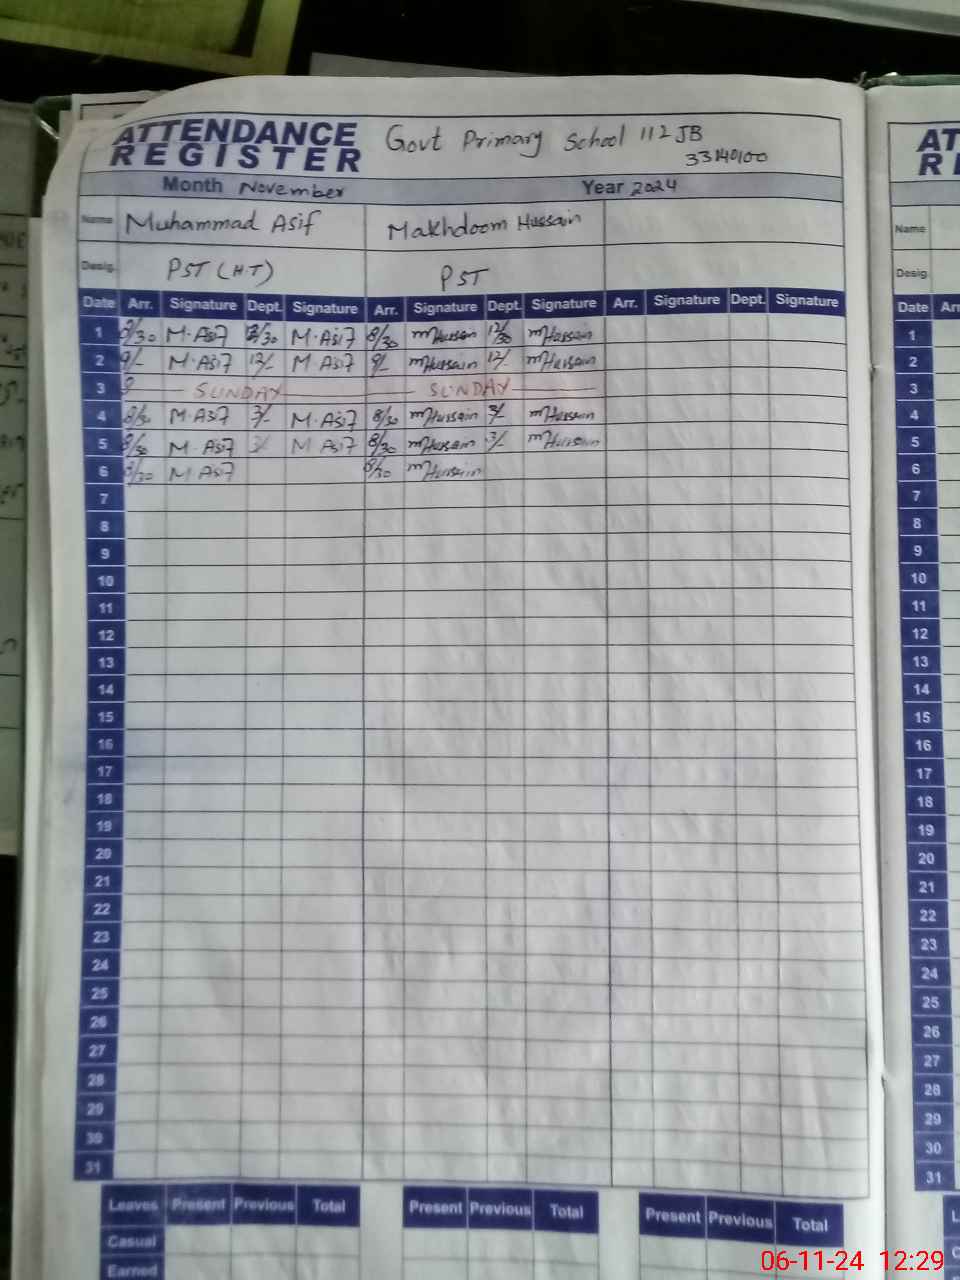 ATTENDANCE REGISTER Govt Primary School 112 JB
33140100
Month November Year 2024
Name Muhammad Asif Makhdoom Hussain
Desig. PST (H.T) PST
Date Arr. Signature Dept. Signature Arr. Signature Dept. Signature Arr. Signature Dept. Signature
1 8/30 M.Asif 12/30 M.Asif 8/30 mHussain 12/30 mHussain
2 9/- M.Asif 12/- M.Asif 9/- mHussain 12/- mHussain
3 SUNDAY SUNDAY
4 8/30 M.Asif 3/- M.Asif 8/30 mHussain 3/- mHussain
5 8/30 M.Asif 3/- M Asif 8/30 mHussain 3/- mHussain
6 8/30 M Asif 8/30 mHussain
7
8
9
10
11
12
13
14
15
16
17
18
19
20
21
22
23
24
25
26
27
28
29
30
31
Leaves Present Previous Total Present Previous Total Present Previous Total
Casual
Earned
Name
Desig.
Date
1
2
3
4
5
6
7
8
9
10
11
12
13
14
15
16
17
18
19
20
21
22
23
24
25
26
27
28
29
30
31
06-11-24 12:29